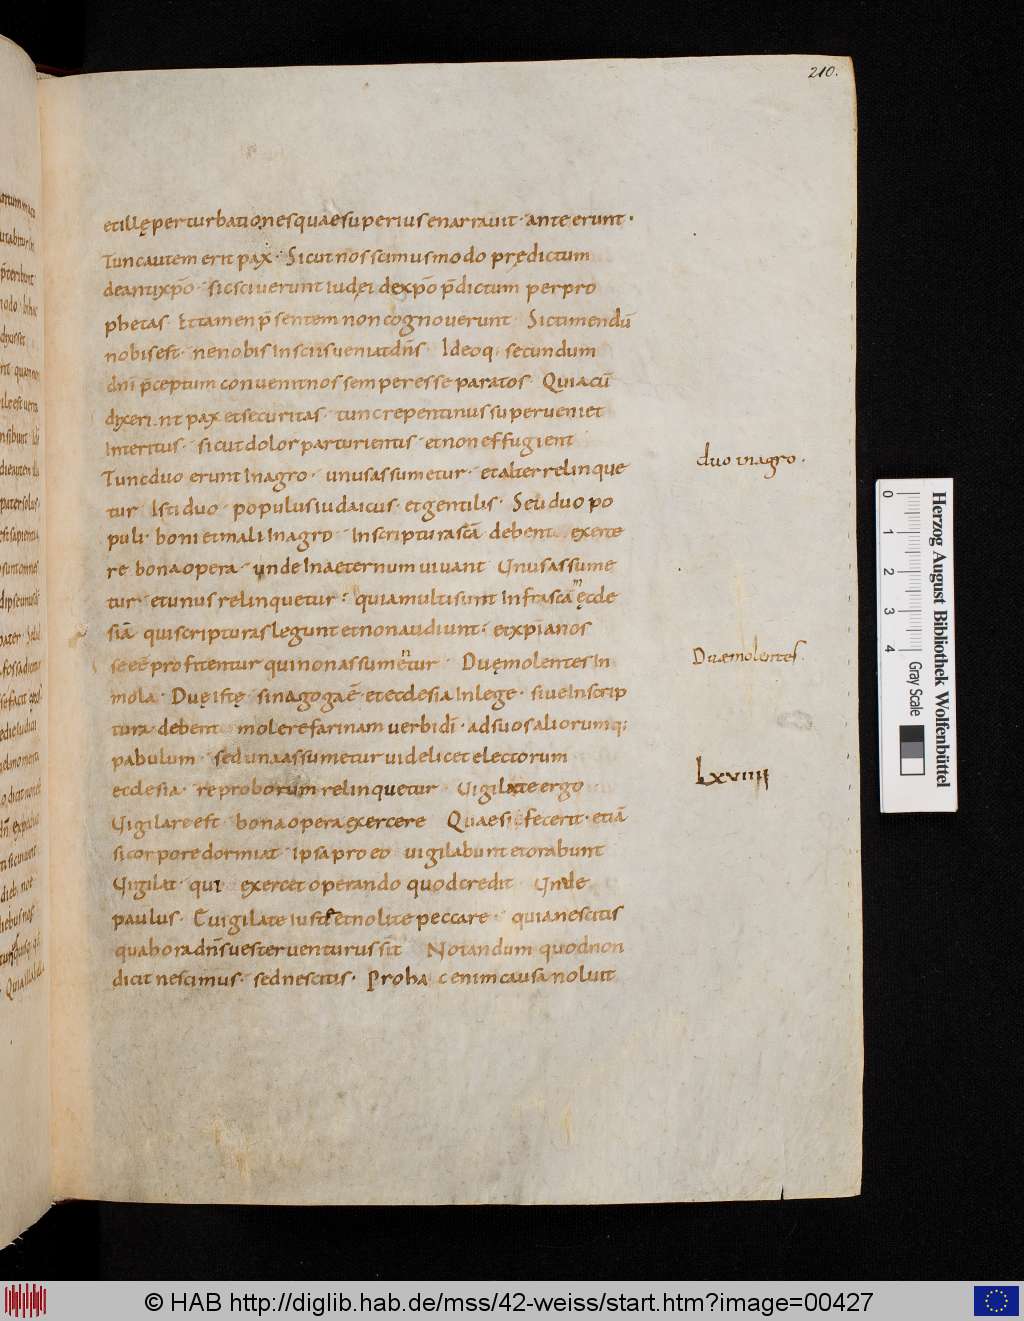 210.
et ille perturbationes quae superius enarravit · ante erunt ·
Tunc autem erit pax · Sicut nos scimus modo prędictum
de antixp̄o · sic sciverunt iudęi de xp̄o p̄dictum per pro
phetas · Et tamen p̄sentem non cognoverunt · Sic timendū
nobis est · ne nobis Insciis veniat dn̄s · Ideoq; secundum
dn̄i p̄ceptum convenit nos semper esse paratos · Quia cū
dixerint pax et securitas · tunc repentinus superveniet
Interitus · sicut dolor parturientis · et non effugient
Tunc duo erunt In agro · unus assumetur · et alter relinque
tur · Isti duo · populus iudaicus · et gentilis · Seu duo po
puli · boni et mali In agro · In scriptura scā debent exerce
re bona opera · unde In aeternum vivant · Unus assume
tur · et unus relinquetur · quia multi sunt Infra scāṁ ęccle
siā qui scripturas legunt et non audiunt · et xp̄ianos
se eē profitentur qui non assumentur · Duę molentes In
mola · Duę istę sinagogaē et ecclesia In lege · sive In scrip
tura debent molere farinam verbi dī · ad suos aliorumq;
pabulum · sed una assumetur videlicet electorum
ecclesia · reproborum relinquetur · Vigilate ergo
Vigilare est bona opera exercere · Quae si fecerit · etiā
si corpore dormiat · ipsa pro eo vigilabunt et orabunt
Vigilat · qui exercet operando quod credit · Unde
paulus · Evigilate iuste et nolite peccare · quia nescitis
qua hora dn̄s vester venturus sit · Notandum quod non
dicit nescimus · sed nescitis · Pro hac enim causa noluit
duo in agro ·
Duae molentes ·
Lxviiii
Herzog August Bibliothek Wolfenbüttel
0 1 2 3 4
Gray Scale
© HAB http://diglib.hab.de/mss/42-weiss/start.htm?image=00427